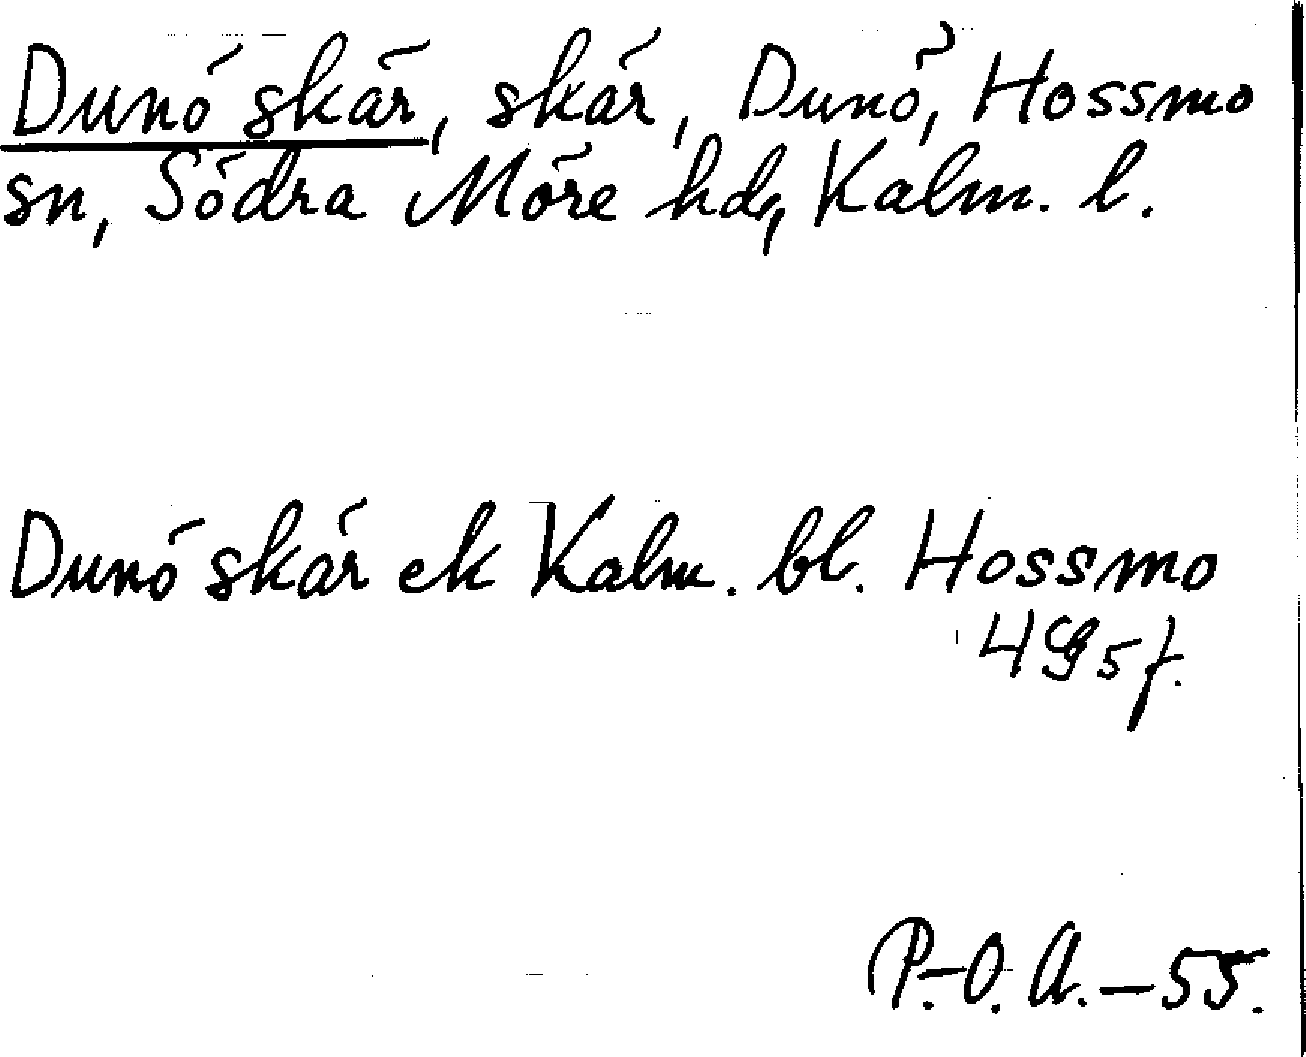 Dunö skär, skär, Dunö, Hossmo
sn, Södra Möre hd, Kalm. l.
Dunö skär ek Kalm. bl. Hossmo
4G5f.
P.-O. A. – 55.